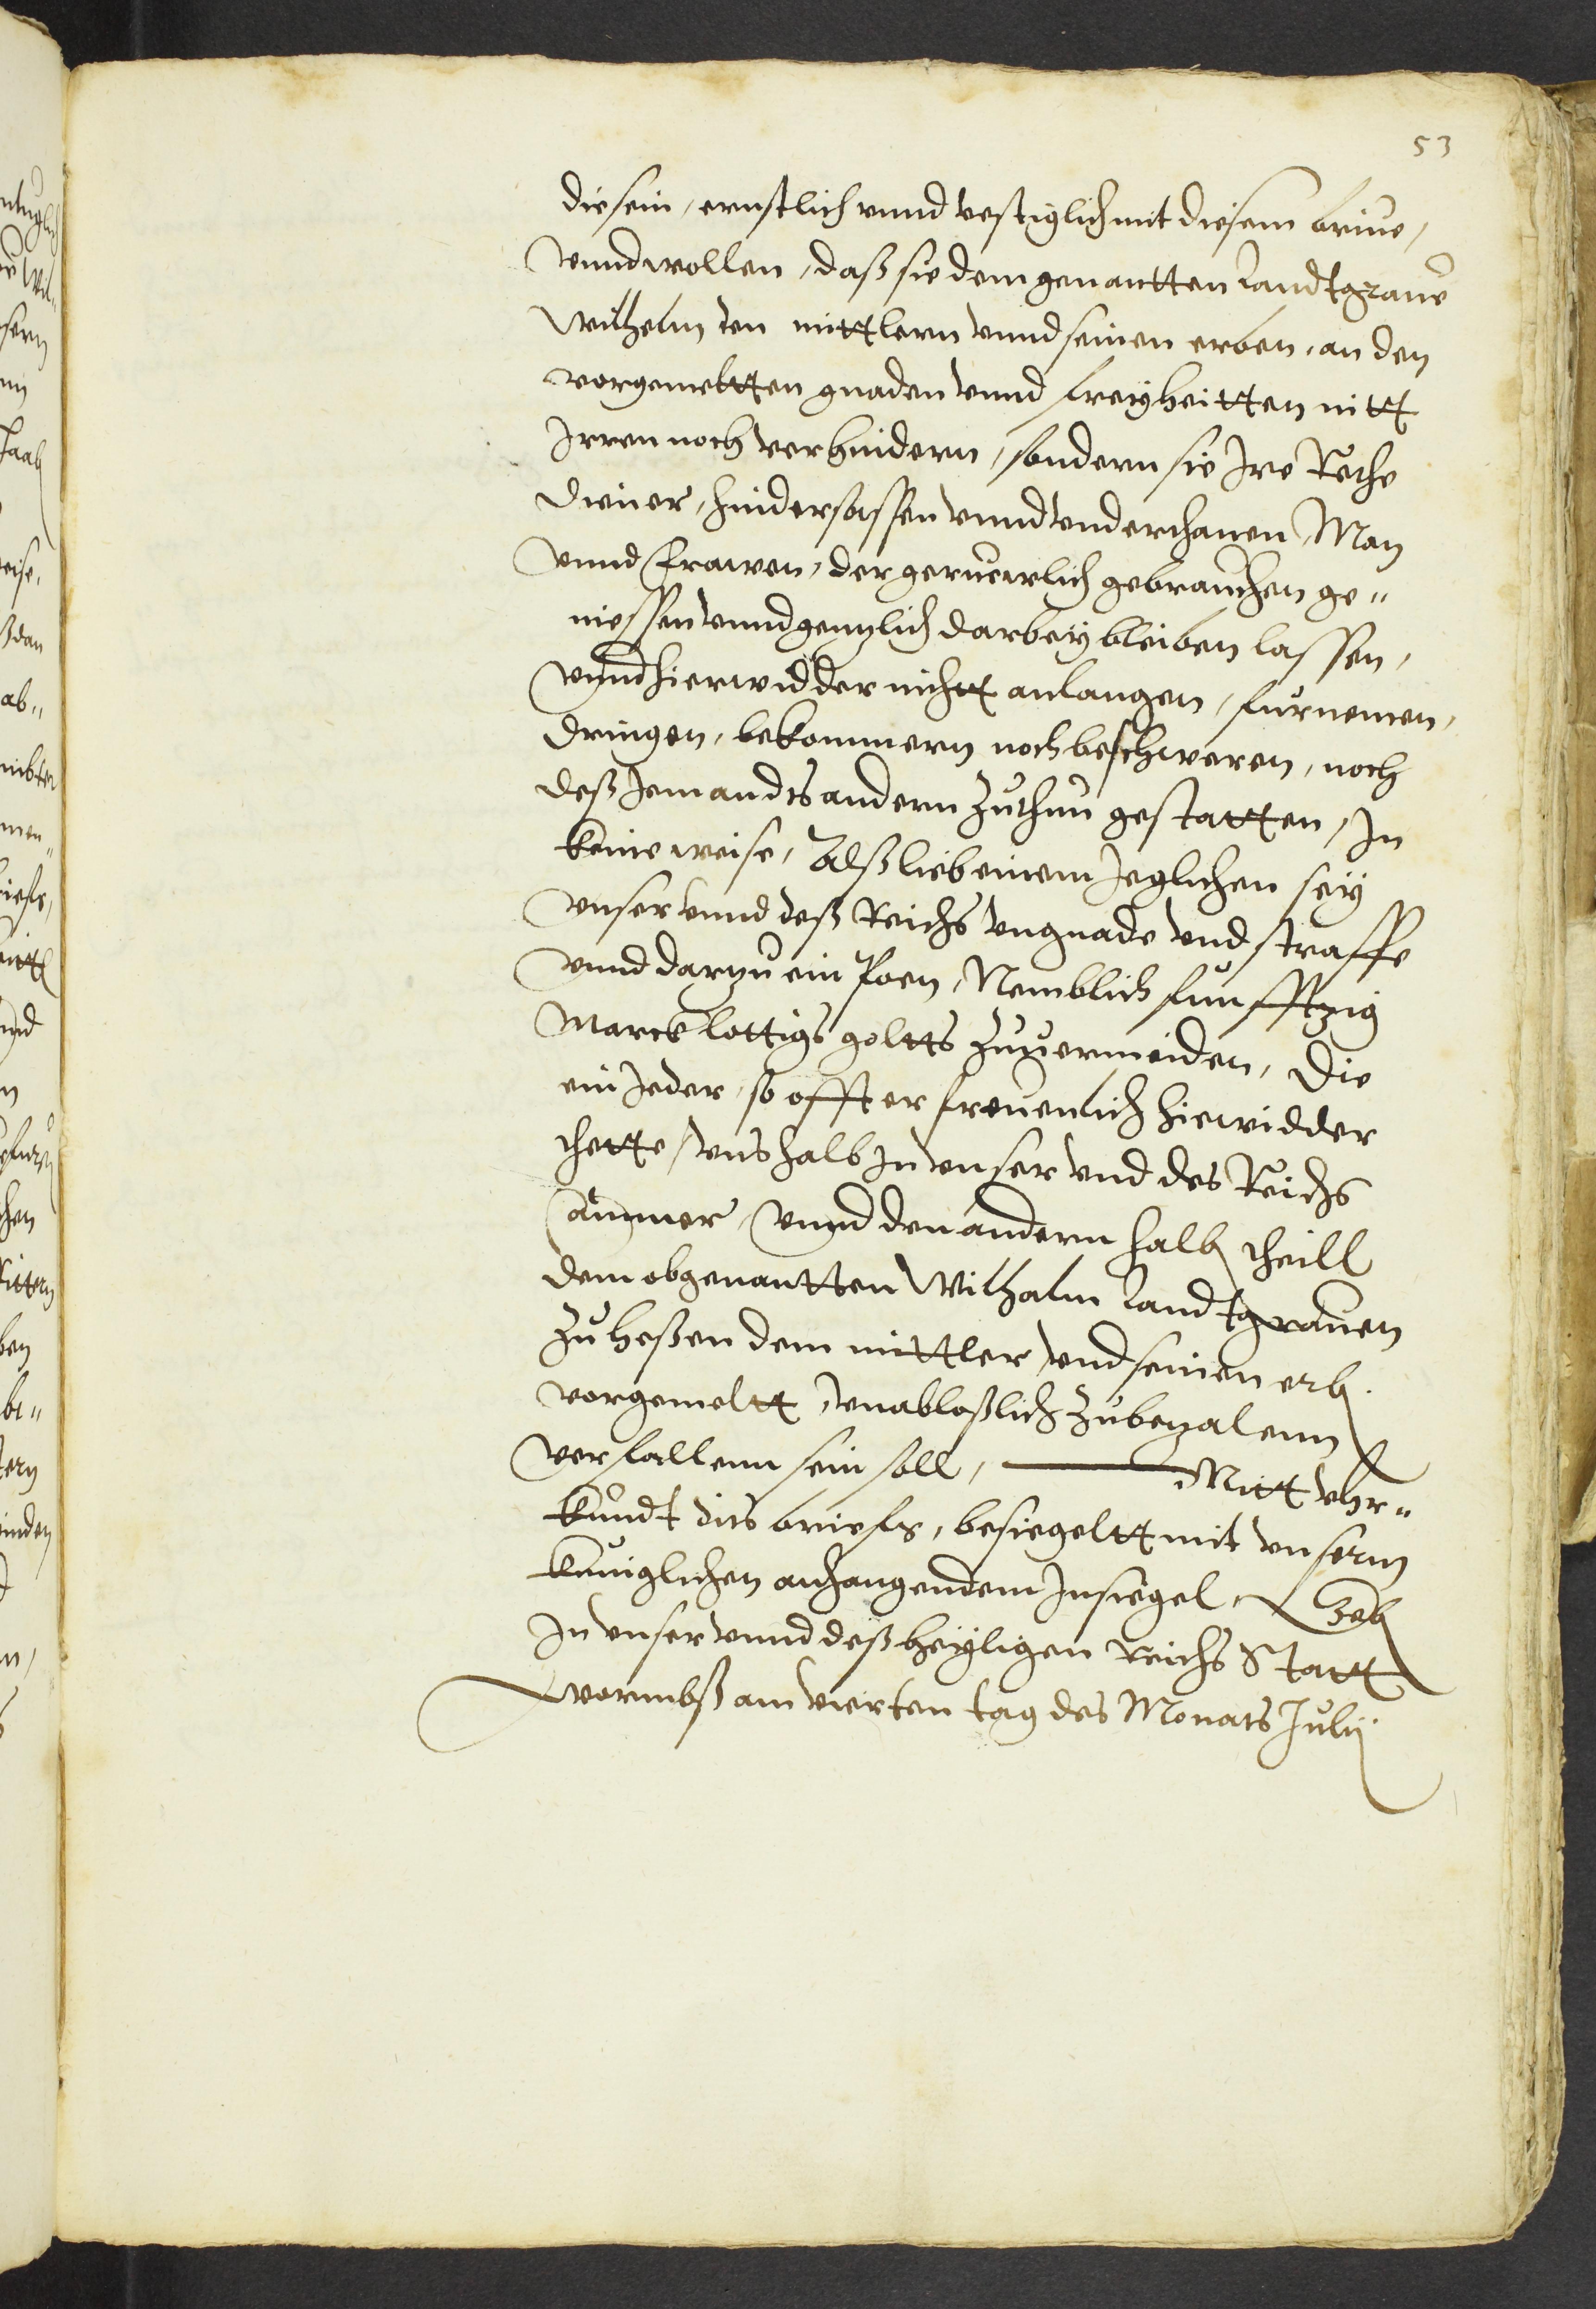 53
die sein, ernstlich vnnd vestiglich mit diesem brieue,
vnnd wollen, daß sie dem genantten Landtgraue
Wilhelm den mittlern vnnd seinen erben, an den
vorgemeltten gnaden vnnd freyheitten nitt
Irren noch verhindern, sondern sie Ire Rethe
diener, hindersassen vnnd vnderthanen, Man
vnnd frawen, der geruewlich gebrauchen ge"
niessen vnnd gentzlich darbey bleiben lassen,
vnnd hierwidder nichtt anlangen, furnemen,
dringen, bekommern noch beschweren, noch
deß Jemandts andern zuthun gestatten, In
keine weise, Alß lieb einem Jeglichen sey
vnser vnnd deß Reichs vngnade vnd straffe
vnnd darzu ein Poen, Nemblich funfftzig
Marck lottigs goltts zuuermeiden, Die
ein Jeder, so offt er freuenlich hiewidder
thette, vns halb In vnser vnd des Reichs
Cammer, vnnd den andern halb theill
dem obgenantten Wilhelm Landtgrauen
zu heßen dem mittler vnd seinen erb.
vorgemeltt, vnabloßlich zubezalenn
verfallenn sein soll, Mitt vhr"
kundt dits brieffs, besiegeltt mit vnserm
kuniglichen anhangendem Insiegel, Geb
In vnser vnnd deß heyligen Reichs Statt
wormbß am vierten tag des Monats Julij